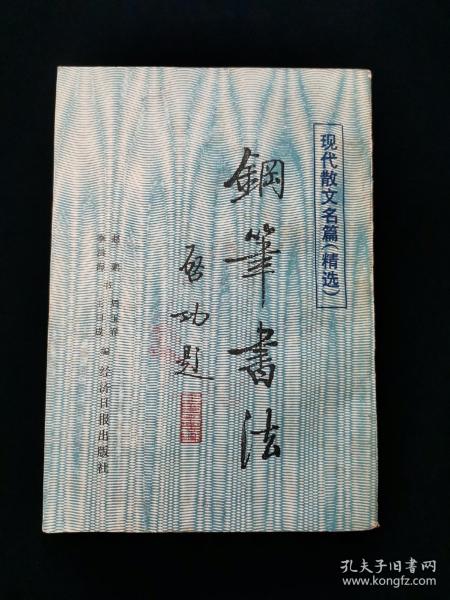 现代散文名篇（精选）
鋼筆書法
启功题
书
编
经济日报出版社
孔夫子旧书网
www.kongfz.com